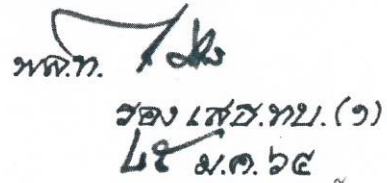 พล.ท.
รอง เสธ.ทบ.(๑)
ม.ค. ๖๔